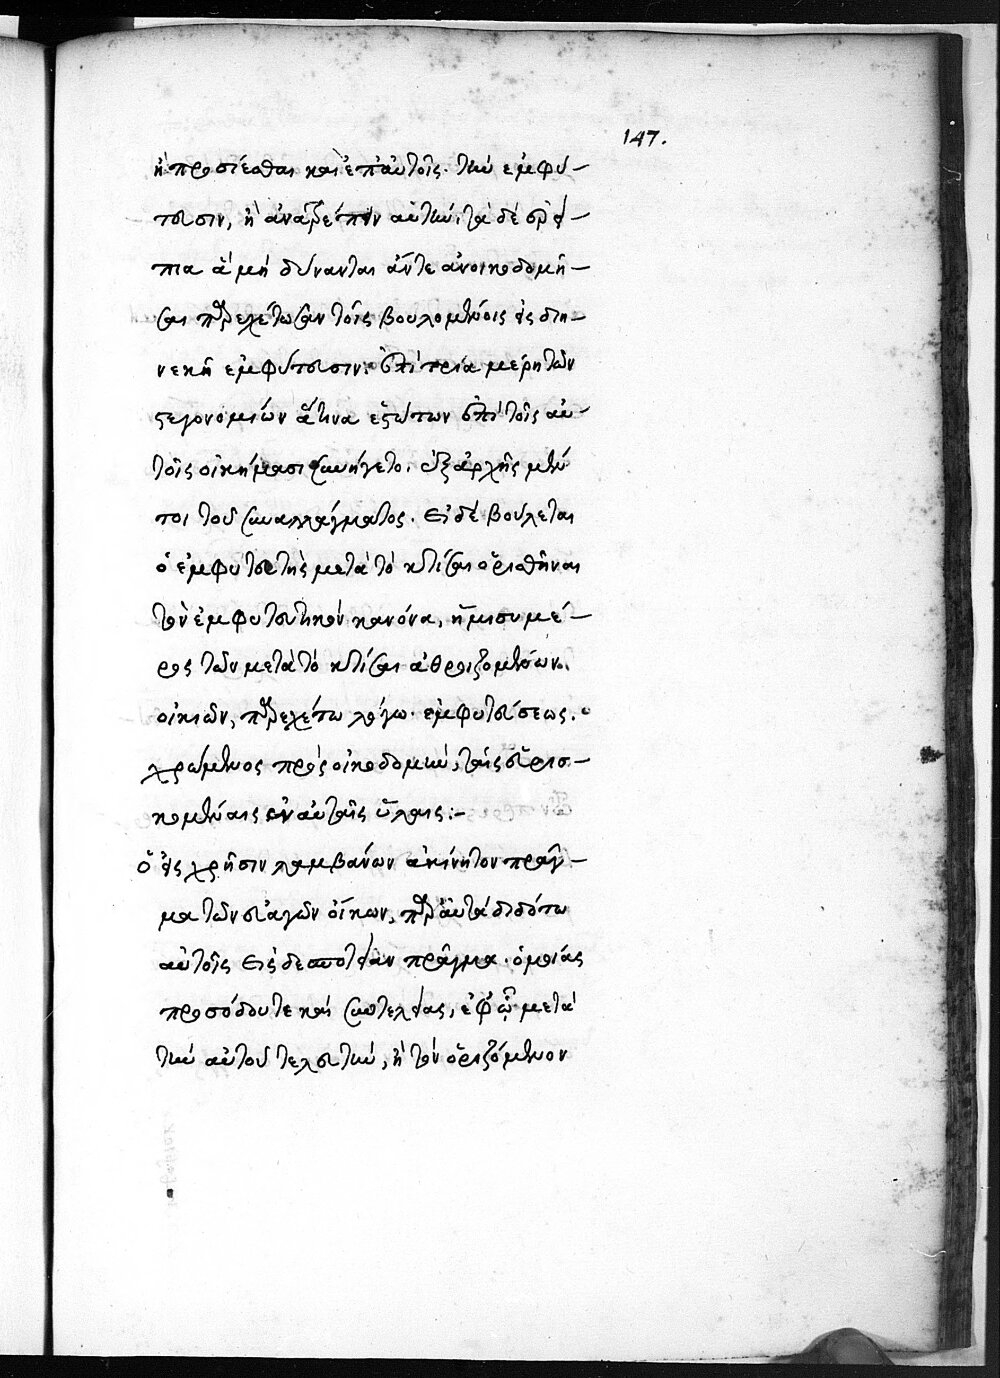 147.
ἢ προσίεσθαι καὶ ἐπ' αὐτοῖς τὴν ἐμφύ-
τευσιν, ἢ ἀνατρέπειν αὐτήν, τὰ δὲ ἐρεί-
πια ἃ μὴ δύνανται ἄντε ἀνοικοδομῆ-
σαι παρεχέτωσαν τοῖς βουλομένοις εἰς διη-
νεκῆ ἐμφύτευσιν· ἐπὶ τρία μέρη τῶν
στεγονομιῶν ἅτινα ἐξ ὧν ἐπὶ τοῖς αὐ-
τοῖς οἰκήμασι συνήγετο. ἐξ ἀρχῆς μέν
τοι τοῦ συναλλάγματος. Εἰ δὲ βούλεται
ὁ ἐμφυτευτὴς μετὰ τὸ κτίσαι ὁρισθῆναι
τὸν ἐμφυτευτικὸν κανόνα, ἥμισυ μέ-
ρος τῶν μετὰ τὸ κτίσαι ἀθροιζομένων
οἰκιῶν, παρεχέτω λόγω ἐμφυτεύσεως.
χρώμενος πρὸς οἰκοδομὴν, ταῖς εὑρισ-
κομέναις ἐν αὐταῖς ὕλαις:-
ὁ εἰς χρῆσιν λαμβάνων ἀκίνητον πρᾶγ-
μα τῶν εὐαγῶν οἴκων, παραυτὰ διδότω
αὐτοῖς εἰς δεσποτείαν πρᾶγμα. ὁμοίας
προσόδου τε καὶ συντελείας, ἐφ' ᾧ μετὰ
τὴν αὐτοῦ τελευτὴν, ἢ τὸν ὁριζόμενον